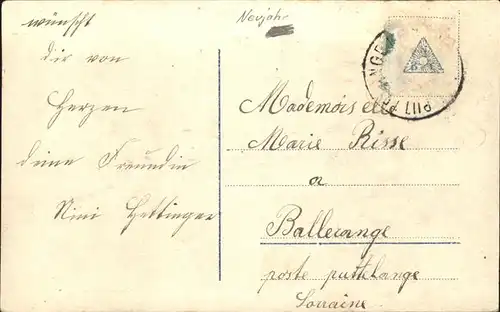 Neujahr
wünscht
dir von
Herzen
deine Freundin
Nini Hettinger
Mademoiselle
Marie Risse
a
Ballerange
poste puttelange
Lorraine